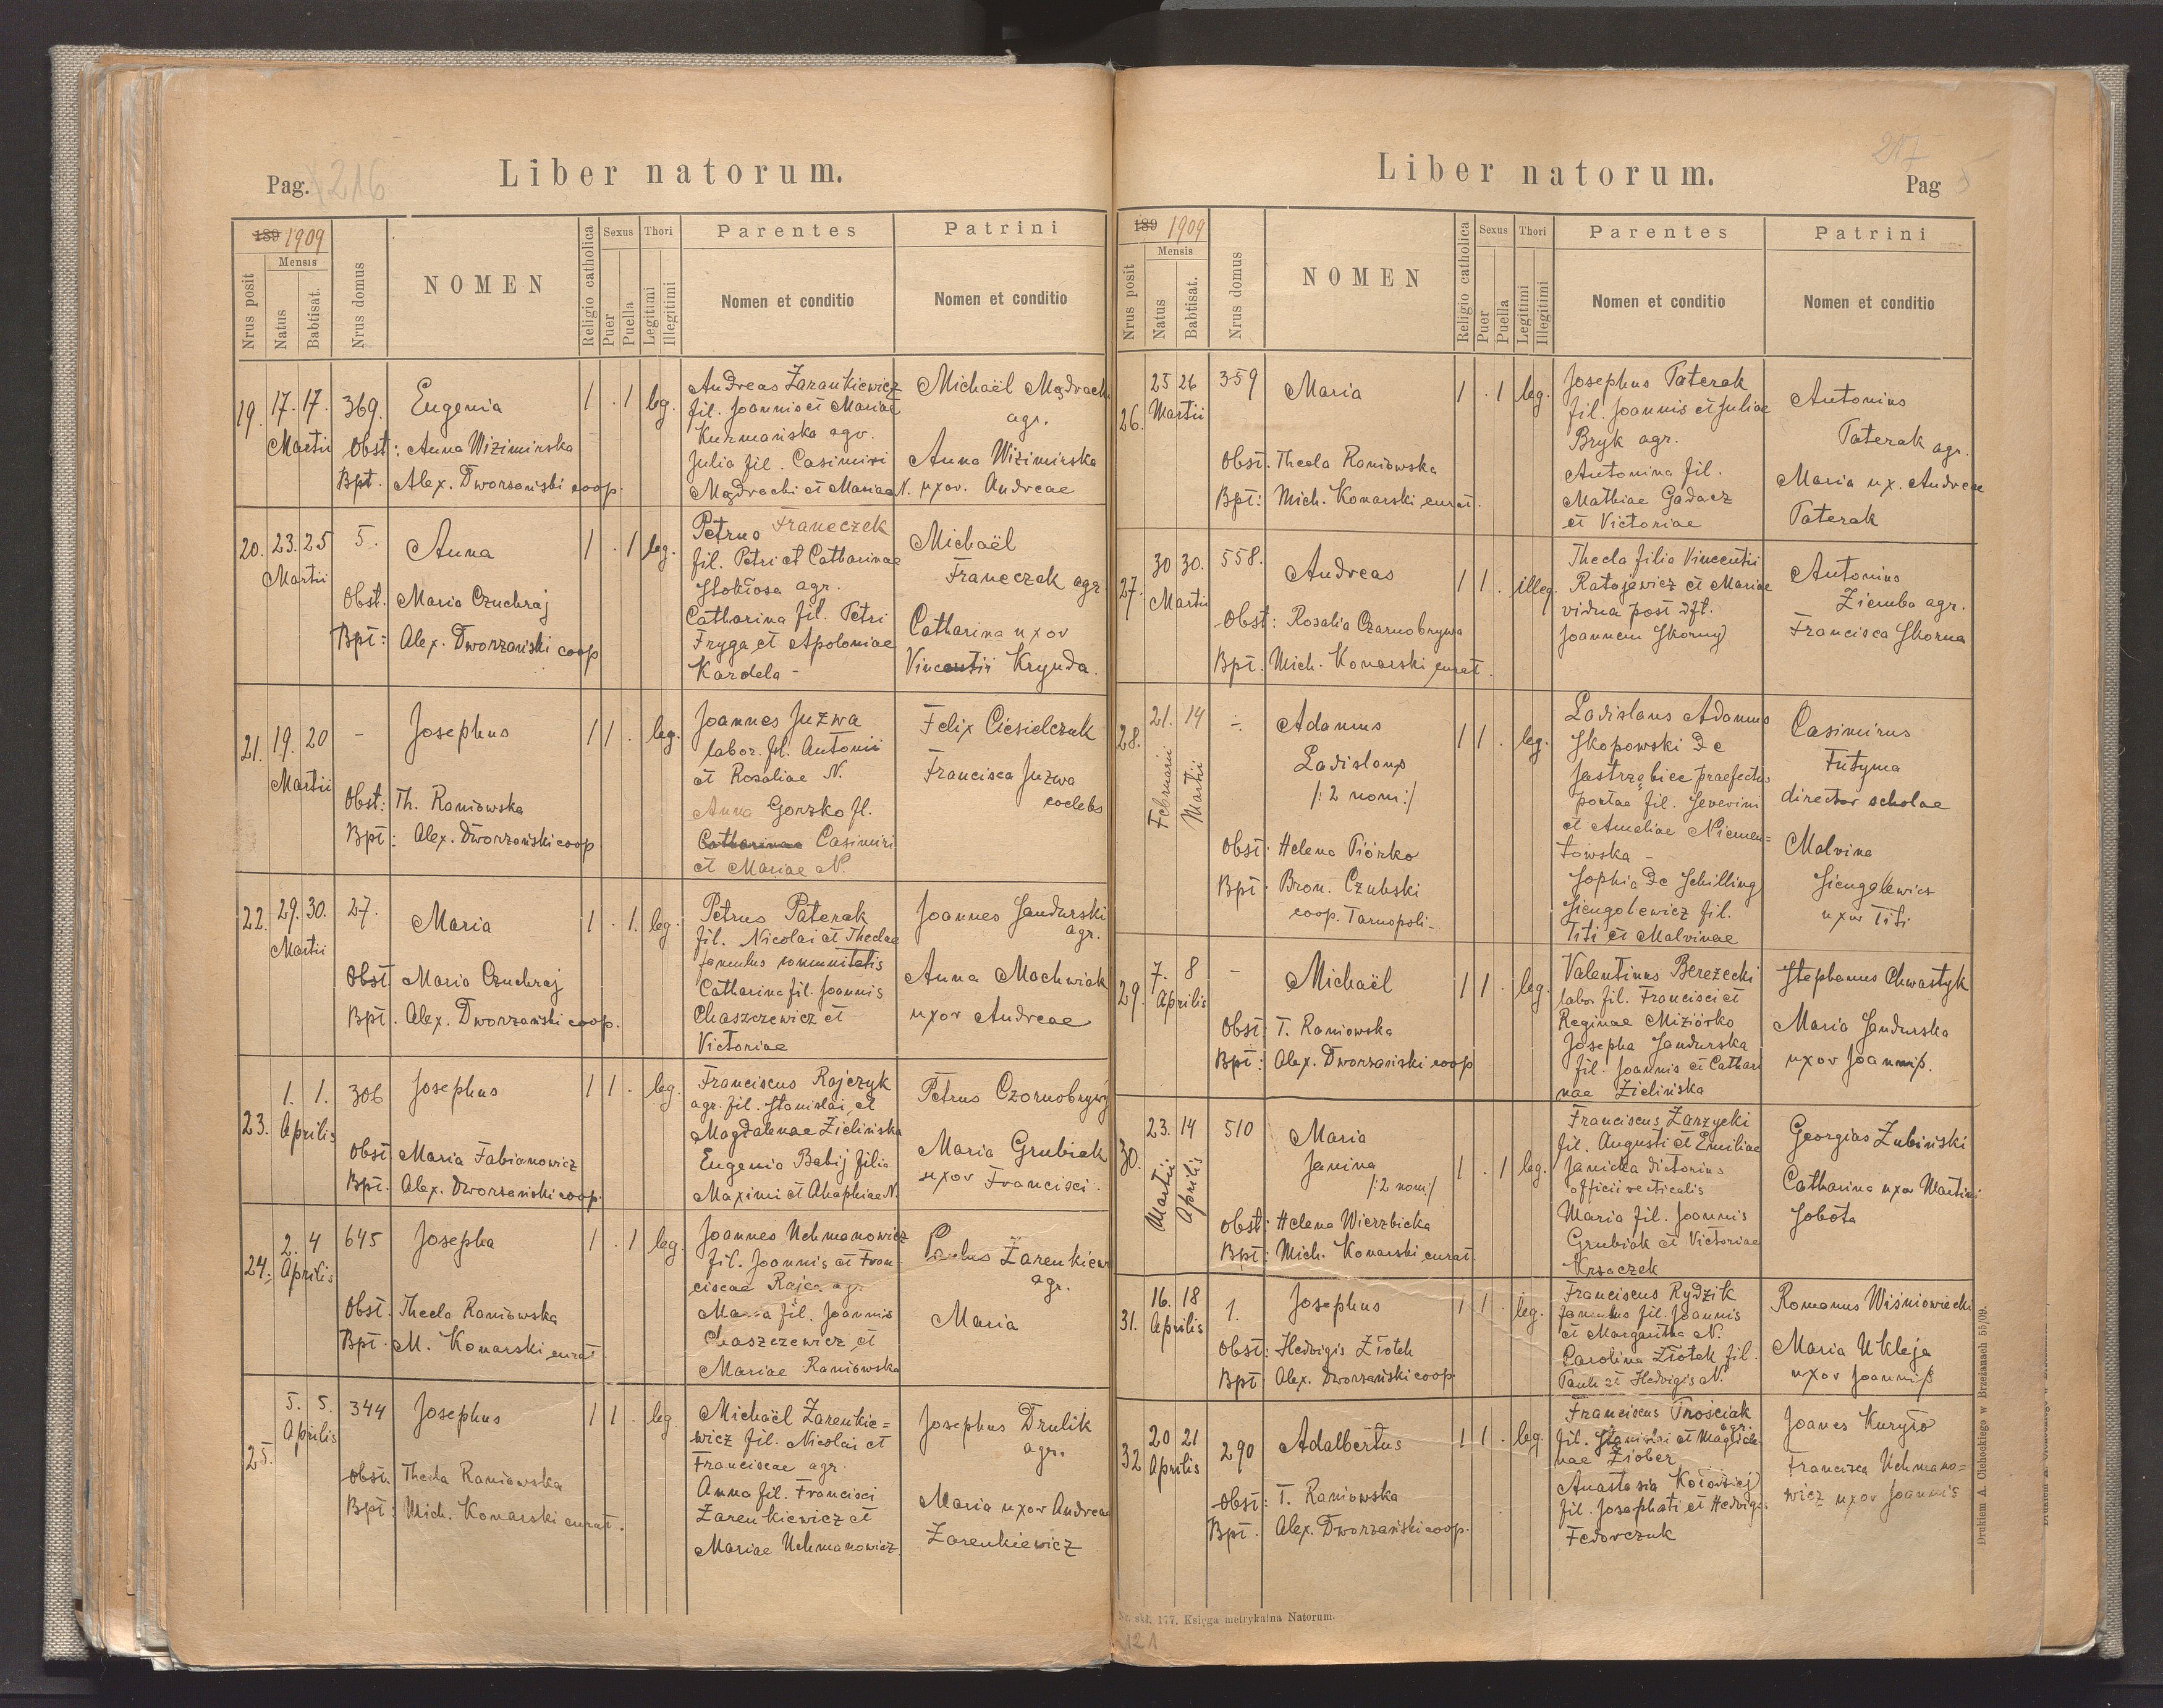 Pag. 216
Liber natorum.
189 1909
Mensis
Nrus posit
Natus
Babtisat.
Nrus domus
NOMEN
Religio catholica
Sexus
Puer
Puella
Thori
Legitimi
Illegitimi
Parentes
Nomen et conditio
Patrini
Nomen et conditio
19. 17. 17. Martii 369. Eugenia 1 . 1 leg.
Obst: Anna Wizimirska
Bpt. Alex. Dworzański coop.
Andreas Zarankiewicz
fil. Joannis et Mariae
Kurmańska agr.
Julia fil. Casimiri
Mądrachi et Mariae N.
Michaël Mądrach
agr.
Anna Wizimirska
uxor. Andreae
20. 23. 25 Martii 5. Anna 1 . 1 leg.
Obst. Maria Czuchraj
Bpt: Alex. Dworzański coop
Petrus Franeczek
fil. Petri et Catharinae
Stokłosa agr.
Catharina fil. Petri
Fryga et Apoloniae
Kardela -
Michaël
Franeczek agr.
Catharina uxor
Vincentii Krynda.
21. 19. 20 Martii - Josephus 1 1 . leg.
Obst: Th. Raniowska
Bpt: Alex. Dworzański coop
Joannes Juzwa
labor. fil. Antonii
et Rosaliae N.
Anna Gorzko fl.
Catharinae Casimiri
et Mariae N.
Felix Ciesielczuk
Francisca Juzwa
coelebs
22. 29. 30. Martii 27. Maria 1 . 1. leg.
Obst Maria Czuchraj
Bpt. Alex. Dworzański coop.
Petrus Paterak
fil. Nicolai et Theclae
famulus communitatis
Catharina fil. Joannis
Chaszczewicz et
Victoriae
Joannes Sandurski
agr.
Anna Machwiak
uxor Andreae
23. 1. 1. Aprilis 306 Josephus 1 1 - leg
Obst Maria Fabianowicz
Bpt. Alex. Dworzański coop.
Franciscus Rajczyk
agr. fil. Stanislai et
Magdalenae Zielińska
Eugenia Babij filia
Maximi et Ahaphiae N.
Petrus Czornobrywy
Maria Grubiak
uxor Francisci.
24. 2. 4 Aprilis 645 Josepha 1 . 1 leg.
Obst. Thecla Raniowska
Bpt. M. Konarski curat
Joannes Uchmanowicz
fil. Joannis et Fran-
ciscae Rajca agr.
Maria fil. Joannis
Chaszczewicz et
Mariae Raniowska
Paulus Zarenkiew
agr.
Maria
25. 5. 5. Aprilis 344 Josephus 1 1 . leg
Obst. Thecla Raniowska
Bpt: Mich. Konarski curat.
Michaël Zarenkie=
wicz fil. Nicolai et
Franciscae agr.
Anna fil. Francisci
Zarenkiewicz et
Mariae Uchmanowicz.
Josephus Drulik
agr.
Maria uxor Andreae
Zarenkiewicz
Liber natorum.
217
Pag 5
189 1909
Mensis
Nrus posit
Natus
Babtisat.
Nrus domus
NOMEN
Religio catholica
Sexus
Puer
Puella
Thori
Legitimi
Illegitimi
Parentes
Nomen et conditio
Patrini
Nomen et conditio
26. 25 26 Martii 359 Maria 1 . 1 leg.
Obst. Thecla Raniowska
Bpt: Mich. Konarski curat.
Josephus Paterak
fil. Joannis et Juliae
Bryk agr.
Antonina fil.
Mathiae Gadacz
et Victoriae
Antonius
Paterak agr.
Maria ux. Andreae
Paterak
27. 30 30. Martii 558. Andreas 1 1 . illeg.
Obst: Rosalia Czarnobrywa
Bpt. Mich. Konarski curat.
Thecla filia Vincentii
Ratajewicz et Mariae
vidua post dft.
Joannem Skorny
Antonius
Ziemba agr.
Francisca Skorna
28. 21. 14 Februarii Martii -:- Adamus 1 1 . leg.
Ladislaus
/: 2 nom :/
Obst: Helena Piórko
Bpt: Bron. Czubski
coop. Tarnopoli-
Ladislaus Adamus
Skopowski de
Jastrzębiec praefectus
postae fil. Severini
et Amaliae Niemen=
towska -
Sophia de Schilling
Siengalewicz fil.
Titi et Malvinae
Casimirus
Futyma
director scholae
Malvina
Siengalewicz
uxor Titi
29. 7. 8 Aprilis - Michaël 1 1 . leg.
Obst: T. Raniowska
Bpt: Alex. Dworzański coop
Valentinus Berezecki
labor fil. Francisci et
Reginae Miziórko
Josepha Sandurska
fil. Joannis et Cathari
nae Zielińska
Stephanus Chwastyk
Maria Sandurska
uxor Joannis.
30. 23. 14 Martii Aprilis 510 Maria 1 . 1 leg.
Janina
/: 2 nom :/
Obst: Helena Wierzbicka
Bpt: Mich. Konarski curat.
Franciscus Zarzycki
fil. Augusti et Emiliae
Janicka dictorius
officii verticalis
Maria fil. Joannis
Grubiak et Victoriae
Krzaczek
Georgias Zubiński
Catharina uxor Martini
Sobota
31. 16. 18 Aprilis 1. Josephus 1 1 . leg.
Obst: Hedvigis Ziotek
Bpt Alex. Dworzański coop.
Franciscus Rydzik
famulus fil. Joannis
et Margaritha N.
Carolina Ziotek fil.
Pauli et Hedvigis N.
Romanus Wiśniowiecki
Maria Ukleja
uxor Joannis
32 20 21 Aprilis 290 Adalbertus 1 1 . leg.
Obst: T. Raniowska
Bpt. Alex. Dworzański coop.
Franciscus Trościak
agr.
fil. Stanislai et Magdale-
nae Ziober
Anastasia Kołodziej
fil. Josephati et Hedvigis
Fedorczuk
Joanes Kuryło
Francisca Uchmano=
wicz uxor Joannis
Nr. skł. 177. Księga metrykalna Natorum.
121
Drukiem A. Cichockiego w Brzeżanach 55/09.